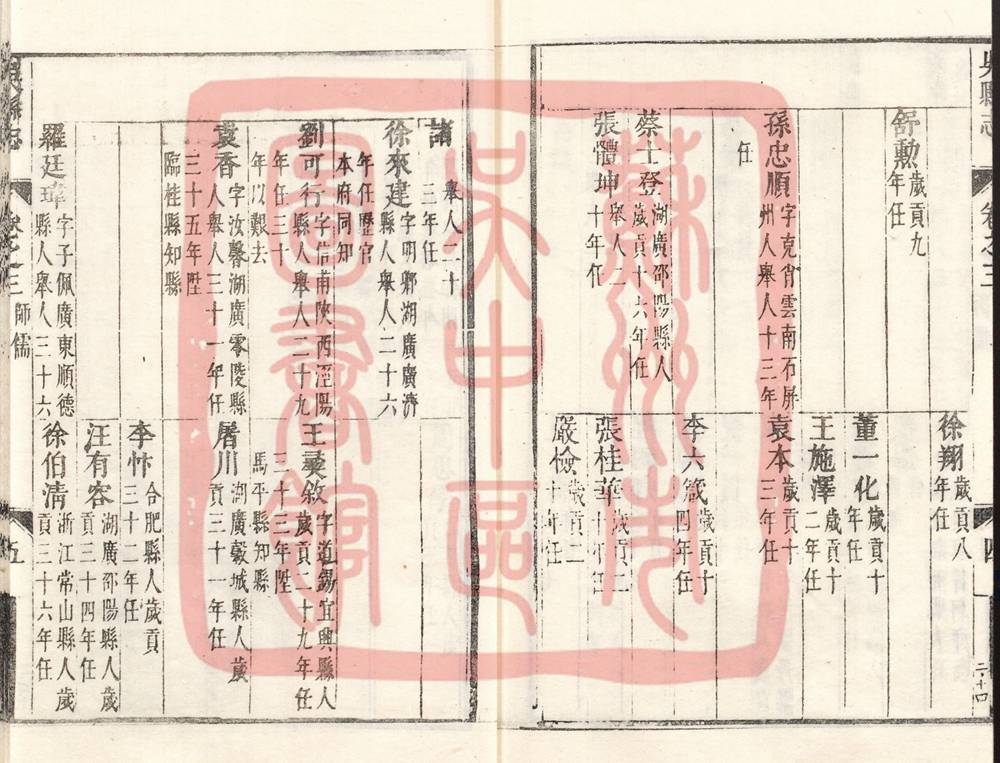 吳縣志
卷之三
四
二十四
舒勲歲貢九
年任
徐翔歲貢八
年任
董一化歲貢十
年任
王施澤歲貢十
二年任
孫忠順字克肖雲南石屏
州人舉人十三年
任
袁本歲貢十
三年任
李六箴歲貢十
四年任
蔡士登湖廣邵陽縣人
歲貢十六年任
張體坤舉人二
十年任
張桂華歲貢二
十年任
嚴儉歲貢二
十年任
諸
舉人二十
三年任
徐來建字明鄉湖廣廣濟
縣人舉人二十六
年任歷官
本府同知
劉可行字信甫陝西涇陽
縣人舉人二十九
年任三十
年以艱去
王彝敘字道錫宜興縣人
歲貢二十九年任
三十三年陞
馬平縣知縣
袁香字汝馨湖廣零陵縣
人舉人三十一年任
三十五年陞
臨桂縣知縣
屠川湖廣縠城縣人歲
貢三十一年任
李忭合肥縣人歲貢
三十二年任
汪有容湖廣邵陽縣人歲
貢三十四年任
羅廷瑋字子佩廣東順德
縣人舉人三十六
徐伯清浙江常山縣人歲
貢三十六年任
吳縣志
卷之三
師儒
五
蘇州市
吳中區
圖書館